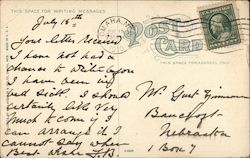 THIS SPACE FOR WRITING MESSAGES
POST CARD
THIS SPACE FOR ADDRESS ONLY
OMAHA
July 15th
Your letter received
I have not had a
chance to write before
I have been
sick. I should
certainly like very
much to come if I
can arrange it I
cannot say when
Best wishes
Mr Gust
Bancroft
Nebraska
Box 7